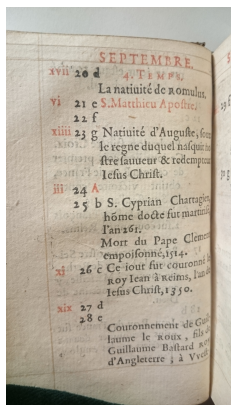 SEPTEMBRE.
xvii 20 d 4. TEMPS.
La natiuité de Romulus.
vi 21 e S. Matthieu Apostre,
22 f
xiiii 23 g Natiuité d'Auguste,
le regne duquel nasquit
stre sauueur & redempteur
Iesus Christ.
iii 24 A
25 b S. Cyprian Chartagien,
hōme docte fut martirisé
l'an 261.
Mort du Pape Clement
empoisonné, 1514.
xi 26 c Ce iour fut couronné
Roy Iean à Reims, l'an
Iesus Christ, 1350.
xix 27 d
28 e
Couronnement de
laume le Roux, fils
Guillaume Bastard Roy
d'Angleterre ; à